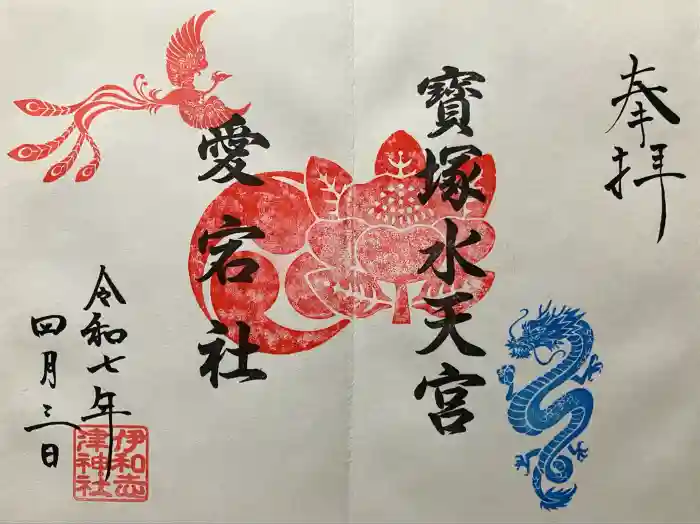 奉拝
寳塚水天宮
愛宕社
令和七年
四月三日
伊和志
津神社